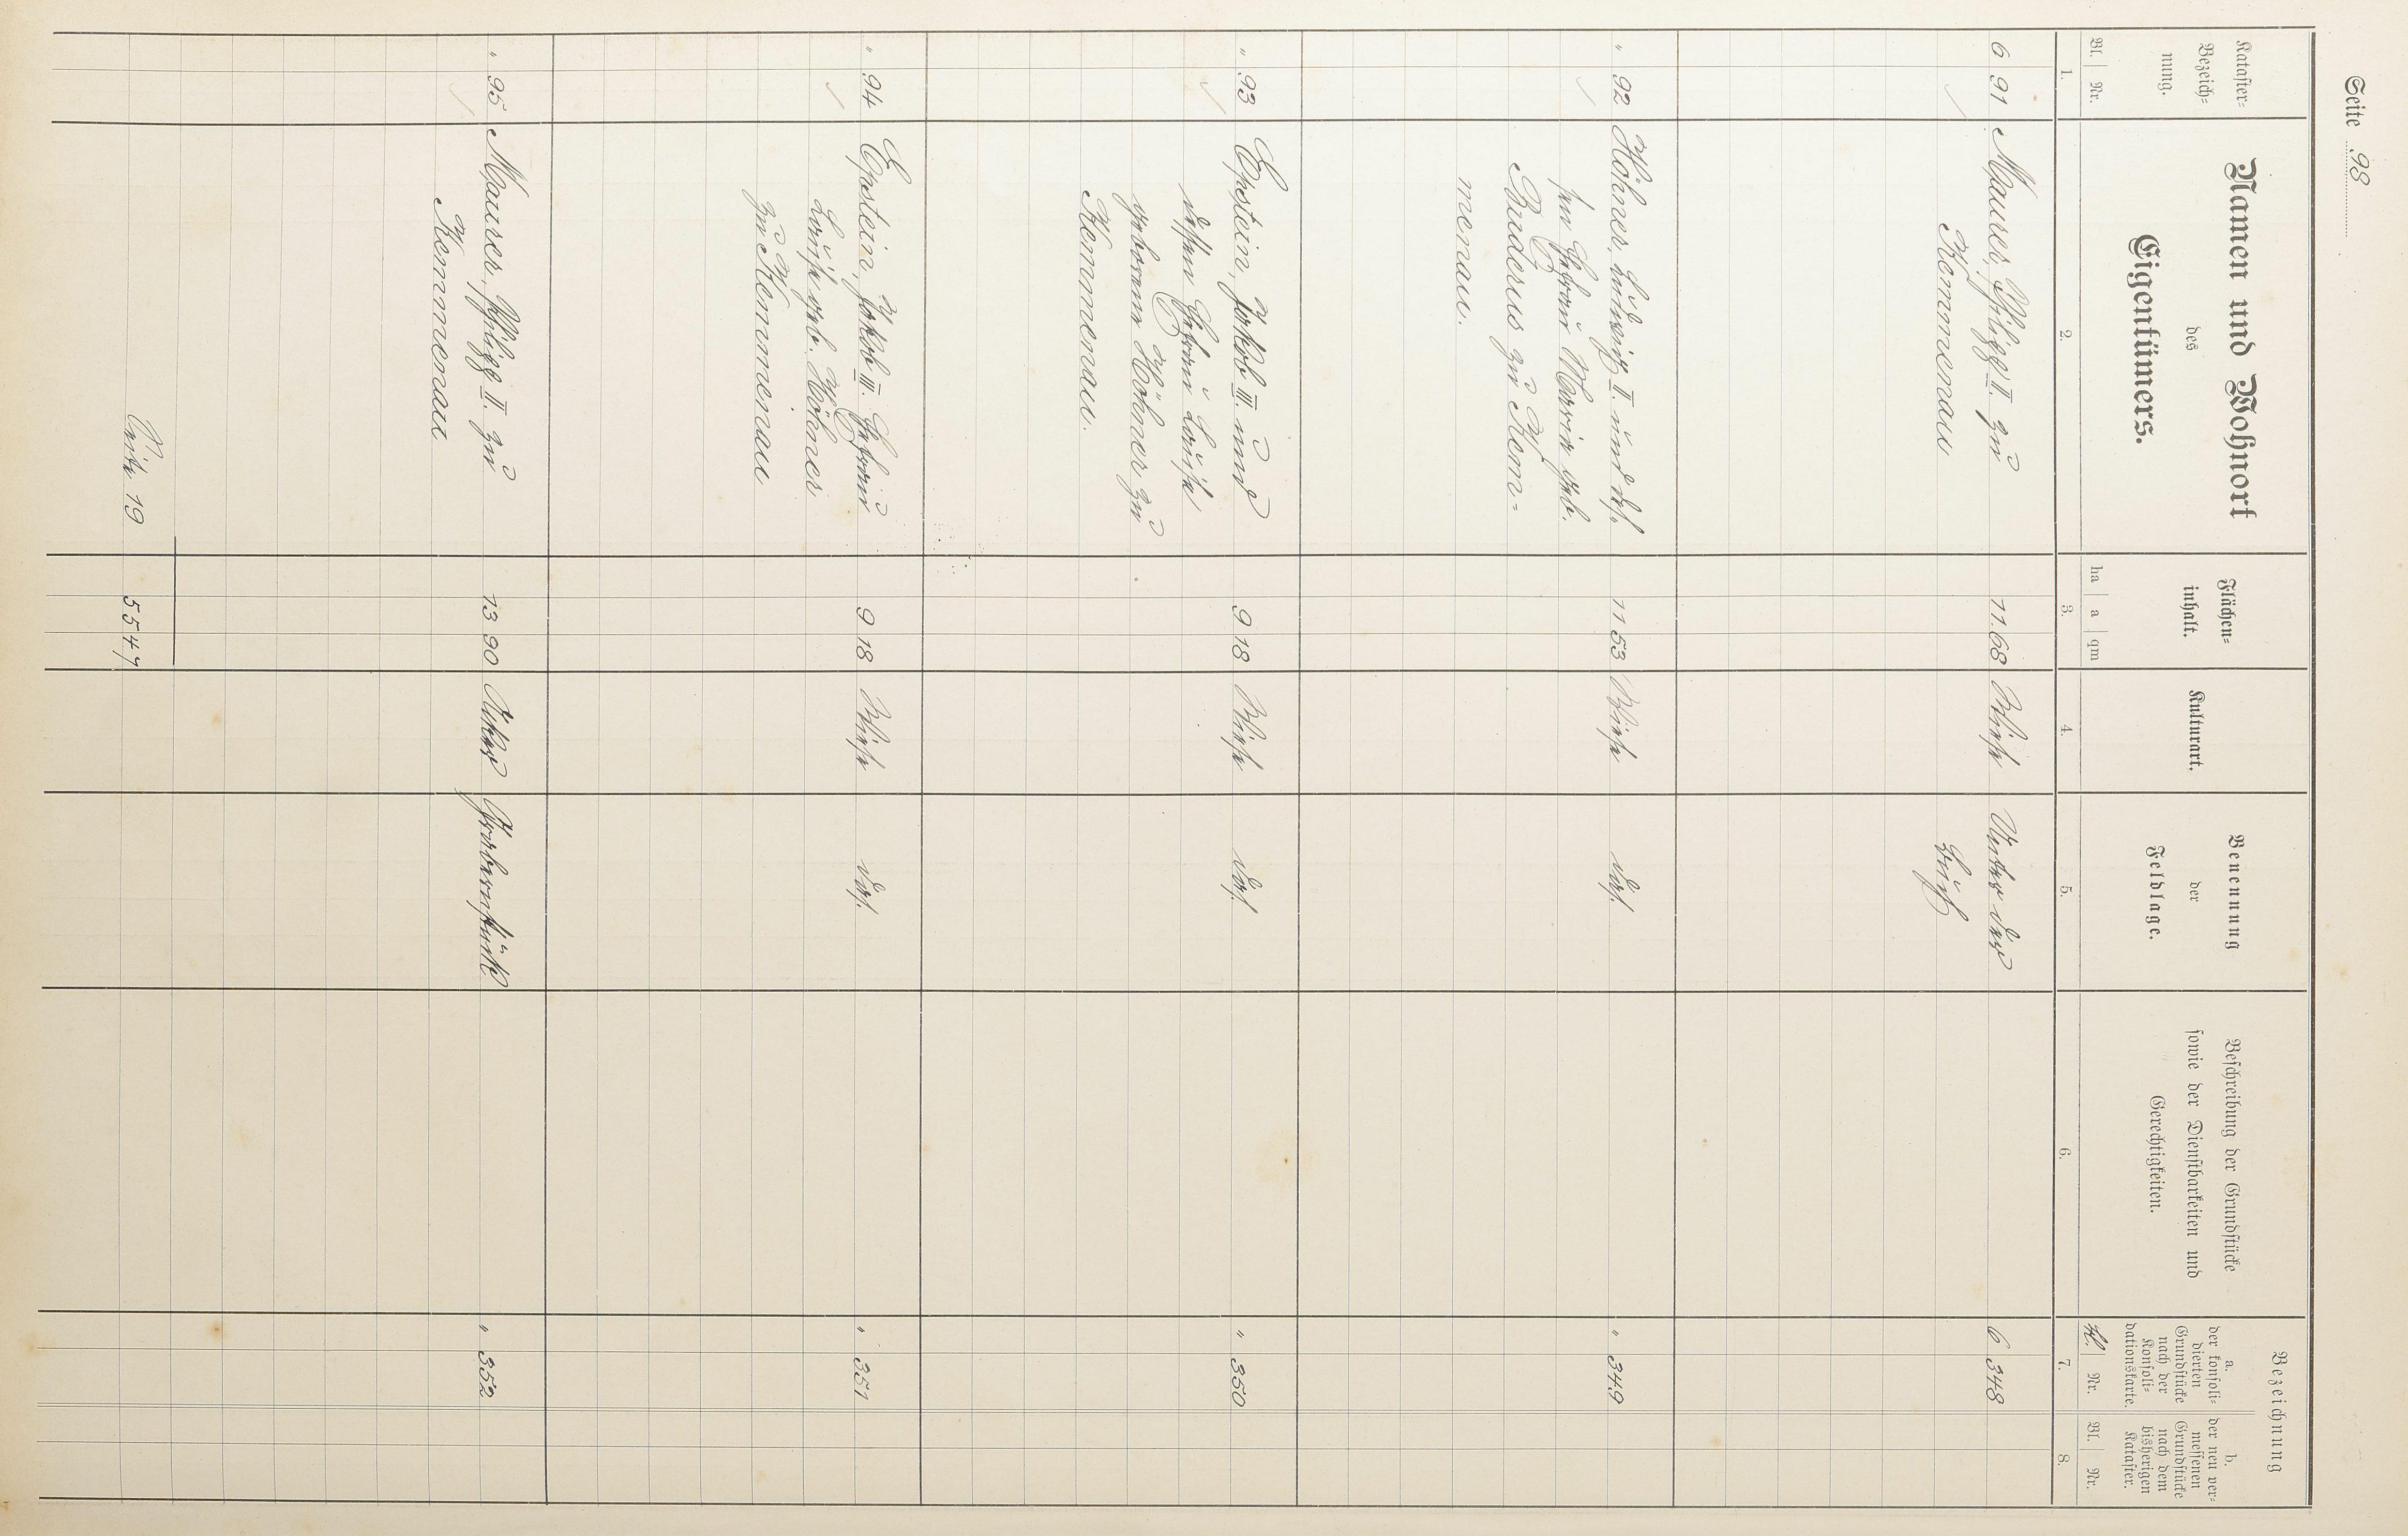 Seite 98
Kataster=
Bezeich=
nung.
Namen und Wohnort
des
Eigentümers.
Flächen=
inhalt.
Kulturart.
Benennung
der
Feldlage.
Beschreibung der Grundstücke
sowie der Dienstbarkeiten und
Gerechtigkeiten.
Bezeichnung
a.
der konsoli=
dierten
Grundstücke
nach der
Konsoli=
dationskarte.
b.
der neu ver=
messenen
Grundstücke
nach dem
bisherigen
Kataster.
Bl. Nr. ha a qm Kl. Nr. Bl. Nr.
1. 2. 3. 4. 5. 6. 7. 8.
6 91 Maurer, Philipp II. zu 11 68 Wiese Unter der 6 348
Kemmenau
" 92 Höhner, Ludwig II. und des= 11 53 Wiese das. " 349
sen Ehefrau Maria geb.
Buderus zu Kem=
menau.
" 93 Epstein, Jakob III. und 9 18 Wiese das. " 350
dessen Ehefrau Louise
geborene Höhner zu
Kemmenau.
" 94 Epstein, Jakob III. Ehefrau 9 18 Wiese das. " 351
Louise geb. Höhner
zu Kemmenau
" 95 Maurer, Philipp II. zu 13 90 Acker " 352
Kemmenau
Seite 19 55 47